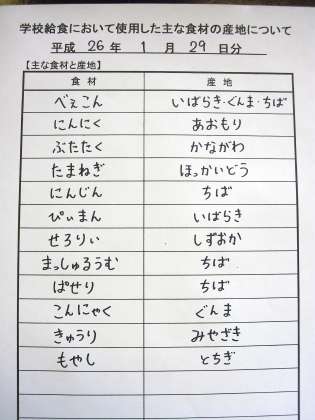 学校給食において使用した主な食材の産地について
平成 26 年 1 月 29 日分
【主な食材と産地】
食材 産地
べぇこん いばらき・ぐんま・ちば
にんにく あおもり
ぶたたく かながわ
たまねぎ ほっかいどう
にんじん ちば
ぴぃまん いばらき
せろりぃ しずおか
まっしゅるうむ ちば
ぱせり ちば
こんにゃく ぐんま
きゅうり みやざき
もやし とちぎ